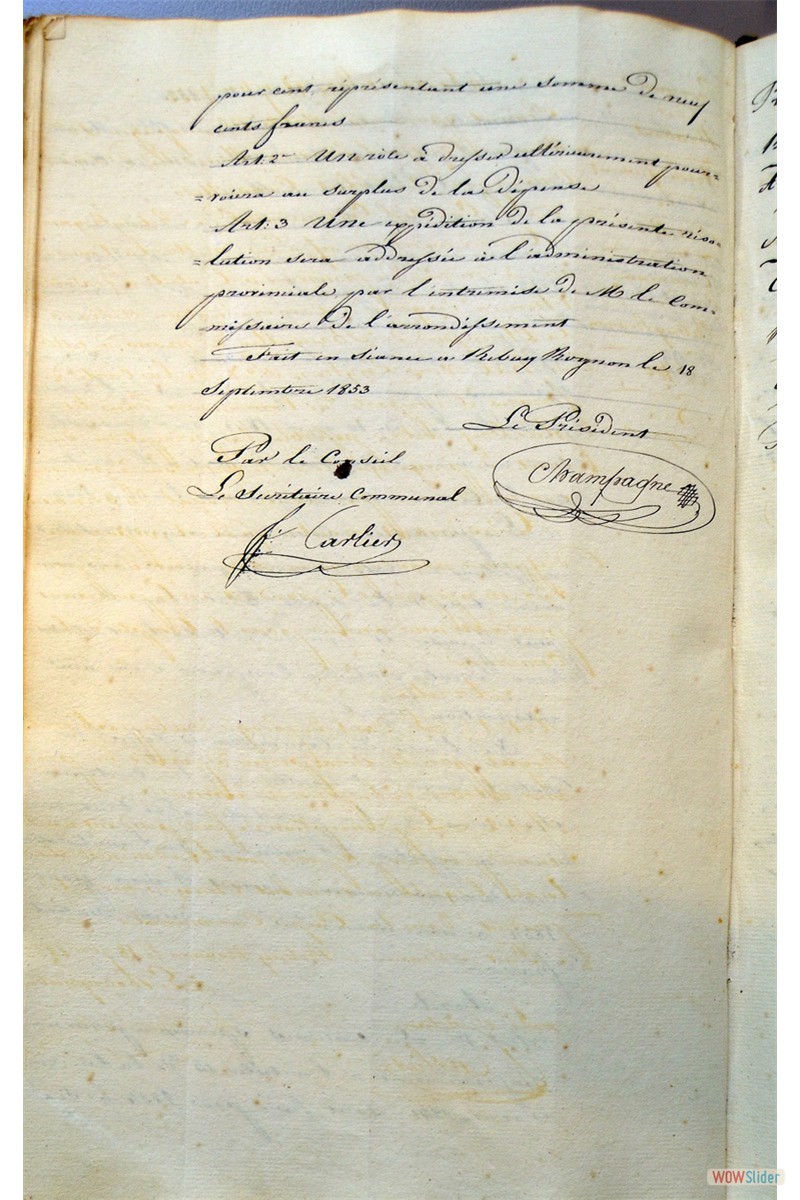 pour cent, représentant une somme de neuf
cents francs
Art: 2 Un rôle à dresser ultérieurement pour=
=voira au surplus de la dépense
Art: 3 Une expédition de la présente réso=
=lution sera addressée à l'administration
provinciale par l'intremise de M le Com=
missaire de l'arrondissement
Fait en séance a Rebay Rognon le 18
Septembre 1853
Le Président
Par le Conseil
Champagne
Le Secrétaire Communal
Carlier
WOWSlider